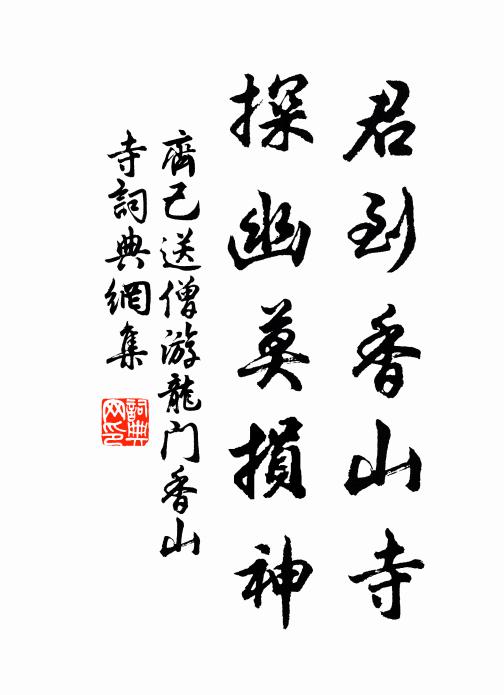 君到香山寺
探幽莫損神
齊己送僧游龍门香山
寺詞典網集
詞典
网印